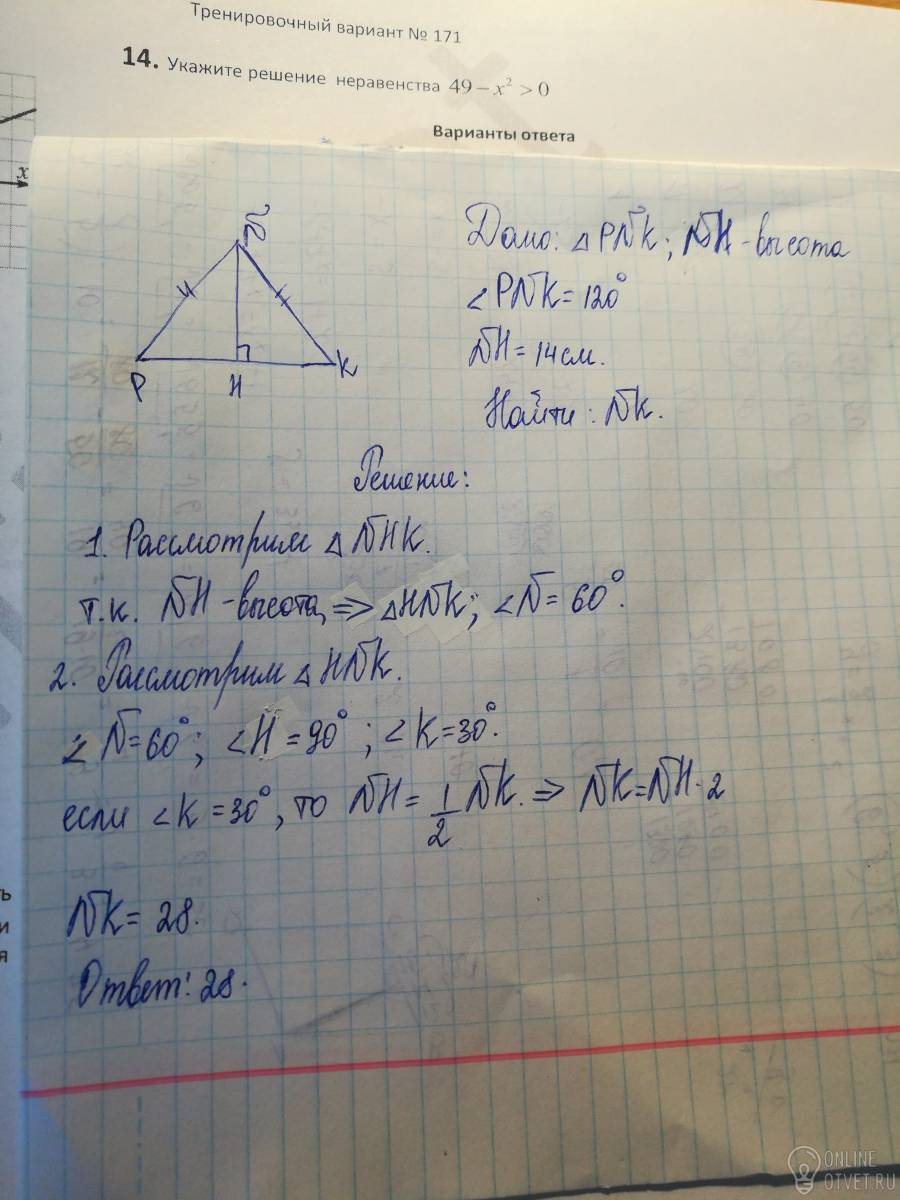 Тренировочный вариант № 171
14. Укажите решение неравенства 49 – x² > 0
Варианты ответа
x
N
P
H
K
Дано: △ PNK; NH - высота
∠PNK = 120°
NH = 14 см.
Найти: NK.
Решение:
1. Рассмотрим △ NHK.
т.к. NH - высота, ⇒ △HNK; ∠N = 60°.
2. Рассмотрим △ HNK.
∠N = 60°; ∠H = 90°; ∠K = 30°.
если ∠K = 30°, то NH = 1/2 NK. ⇒ NK = NH · 2
NK = 28.
Ответ: 28.
ть
и
я
ONLINE
OTVET.RU